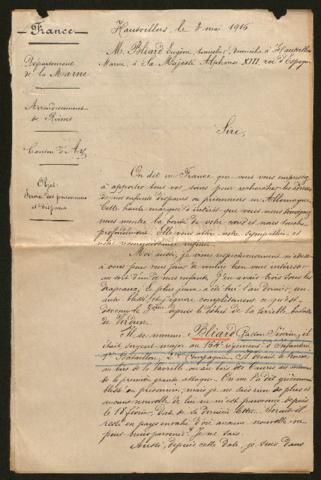 France
Département
de la Marne
Arrondissement
de Reims
Canton d'Ay
Objet
Hautvillers, le 8 mai 1916
M. Bliard Eugène, domicilié à Hautvillers
Marne, à Sa Majesté Alphonse XIII, roi d'Espagne
Sire,
On dit en France que vous vous
apporter tous vos soins pour rechercher les
de nos enfants disparus ou prisonniers en Allemagne.
Cette haute marque d'intérêt que vous nous témoignez
nous montre la bonté de votre et nous touche
profondément. Elle vous attire notre sympathie et
notre reconnaissance infinie.
Moi aussi, je viens respectueusement
à vous pour vous prier de vouloir bien vous intéresser
au sort d'un de mes enfants. J'en avais trois sous les
drapeaux. Le plus jeune a été tué l'an dernier, un
autre et j'ignore complètement ce qu'est
devenu le depuis le début de la terrible bataille
de Verdun.
Il se nomme Bliard
était sergent-major au 164e régiment d'infanterie
Bataillon, Compagnie. Il
au bois de la ou au bois des Caures au moment
de la première grande attaque. On m'a dit
blessé ou prisonnier, mais je ne sais rien de plus et
aucune nouvelle de lui ne m'est parvenue depuis
le 15 février, date de sa dernière lettre. Serait-il
resté en pays envahi d'où aucune nouvelle ne
peut nous parvenir? Je ne sais.
Aussi, depuis cette date, je suis dans